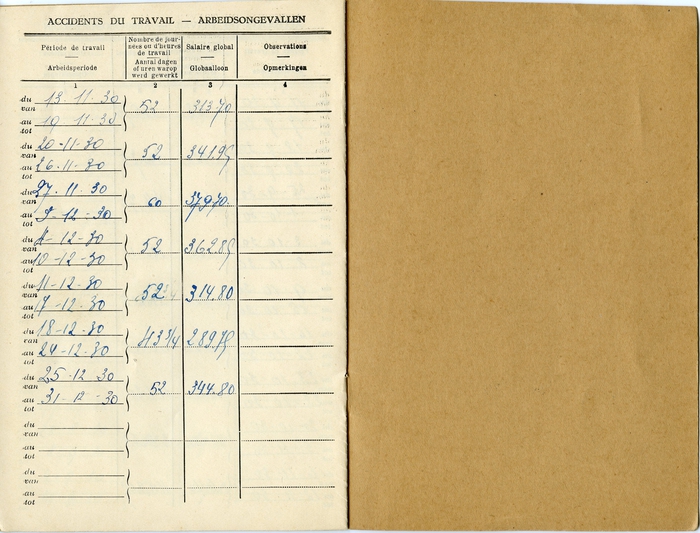 ACCIDENTS DU TRAVAIL — ARBEIDSONGEVALLEN
Période de travail — Arbeidsperiode
Nombre de jour-
nées ou d'heures
de travail
Aantal dagen
of uren waarop
werd gewerkt
Salaire global — Globaalloon
Observations — Opmerkingen
1 2 3 4
du van 13-11-30 52 313.70
au tot 19 11-30
du van 20-11-30 52 341.95
au tot 26-11-30
du van 27.11.30 60 379.70
au tot 3-12-30
du van 4-12-30 52 362.85
au tot 10-12-30
du van 11-12-30 52 314.80
au tot 17-12-30
du van 18-12-30 43 3/4 289.75
au tot 24-12-30
du van 25-12 30 52 344.80
au tot 31-12-30
du van
au tot
du van
au tot